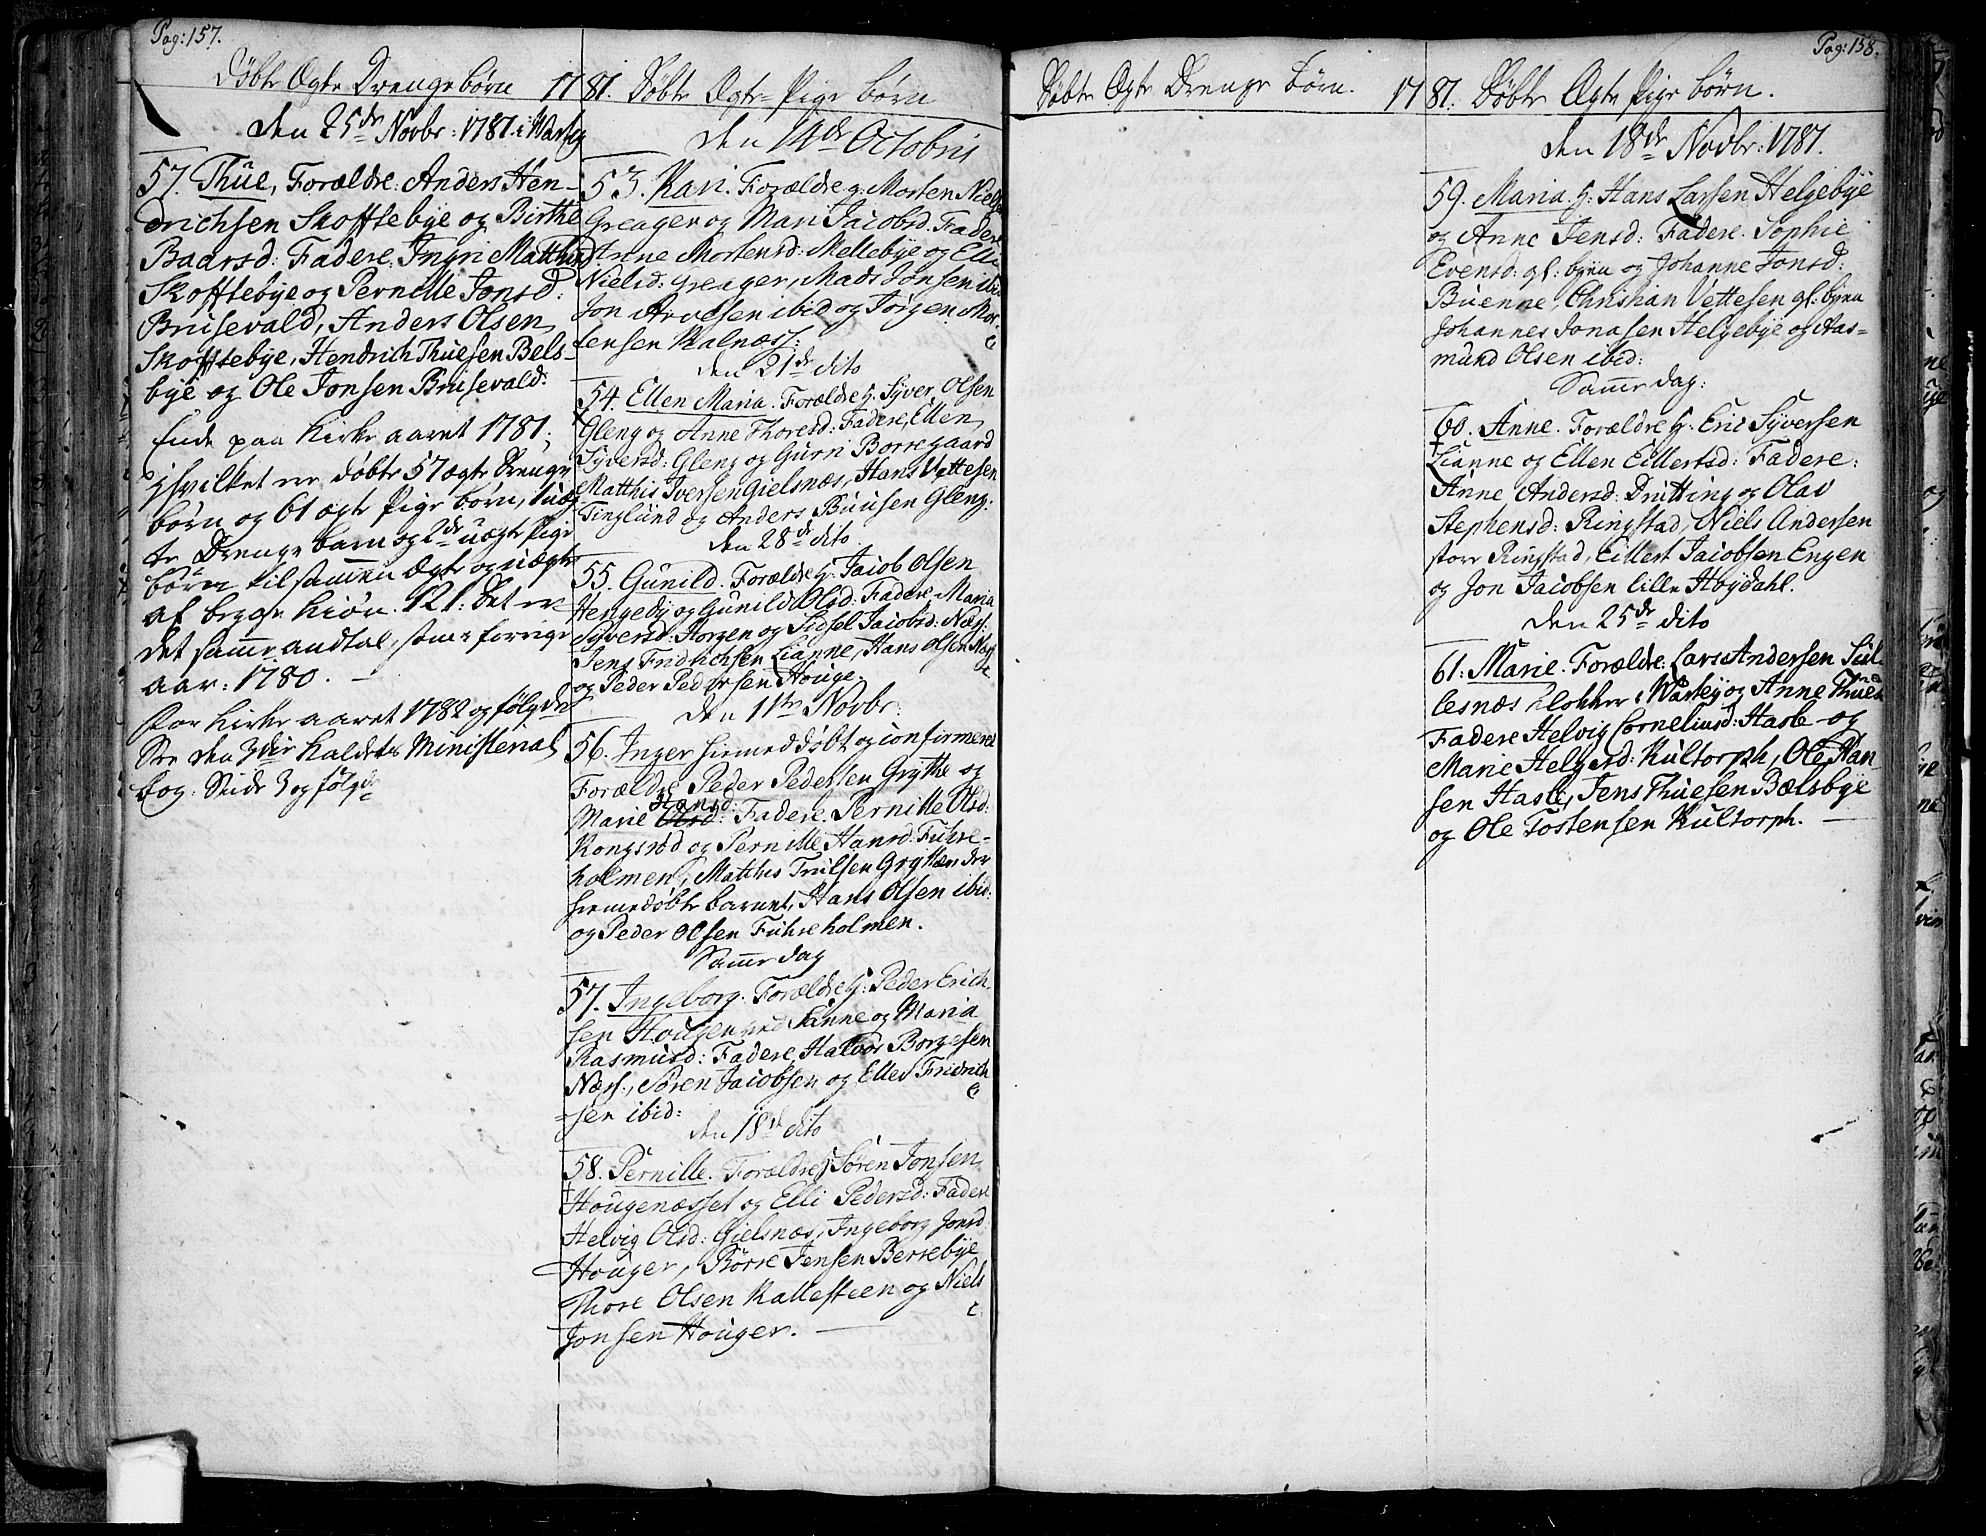 Pag: 157.
Døbte Ægte Drengebørn 1781.
den 25de Novbr: 1781. i Warteig
57. Thue, Forældre: Anders Hen-
drichsen Skofftebye og Birthe
Baarsd: Fadere: Ingri Matthisd
Skofftebye og Pernille Jonsd:
Brusevald, Anders Olsen
Skofftebye, Hendrich Thuesen Bels-
bye og Ole Jonsen Brusevald.
Ende paa Kirke aaret 1781,
i hvilket ere døbte 57 ægte Drenge
børn og 61 ægte Pige børn, 1 uæg-
te Drenge barn og 2de uægte Pige
børn tilsammen ægte og uægte
af begge Kiøn. 121: det er
det samme andtal, som forrige
aar: 1780.
For Kirke aaret 1782 og følgde
See den 3die Kaldets Ministerial
bog: Side 3 og følgde
Døbte Ægte Pige børn
den 14de Octobris
53. Kari. Forældre: Morten Niels
Greager og Mari Jacobsd: Fadere
Anne Mortensd: Mellebye og Elli
Nielsd: Greager, Mads Jonsen ibid
Jon Arvesen ibid og Jørgen Mor-
tensen Kalnæss:
den 21de dito
54. Ellen Maria. Forældre: Syver Olsen
Gleng og Anne Thoresd: Fadere, Ellen
Syversd: Gleng og Gurri Borregaard
Matthis Iversen Gielsnæs, Hans Vettesen
Tinglund og Anders Buusen Gleng:
den 28de dito
55. Gunild. Forældre: Jacob Olsen
og Gunild Olsd: Fadere: Maria
Syversd: Horgen og Sidsel Jacobsd: Næss:
Jens Fridrichsen Lianne, Hans Olsen Næss
og Peder Pedersen Houge.
den 11te Novbr:
56. Inger hiemedøbt og confirmered
Forældre Peder Pedersen Grythe og
Marie Hansd: Fadere. Pernille Olsd:
Kongsrød og Pernille Hansd: Fuhre-
holmen, Matthis Trulsen Gryther der
hiemedøbte barnet, Hans Olsen ibid:
og Peder Olsen Fuhreholmen.
Samme dag
57. Ingeborg. Forældre: Peder Erich
sen Hougen ved Sanne og Maria
Rasmusd: Fadere, Halvor Borgesen
Næss., Søren Jacobsen og Ellef Fridrich
sen ibid:
den 18de dito
58. Pernille. Forældre: Søren Jonsen
Hougenæsset og Elli Pedersd: Fadere
Helvig Olsd: Gielsnæs, Ingeborg Jonsd
Houger, Børre Jensen Berrebye
Thore Olsen Kallesteen og Niels
Jonsen Houger.
Døbte Ægte Drenge Børn. 1781.
Pag: 158.
Døbte Ægte Pige børn.
den 18de Novbr: 1781.
59. Maria. Hans Larsen Helgebye
og Anne Jensd: Fadere. Sophie
Evensd: gl: byen og Johanne Jonsd:
Buenne, Christian Vettesen gl: byen
Johannes Jonasen Helgebye og Aas-
mund Olsen ibid:
Samme dag:
60. Anne. Forældre: Eric Syversen
Lianne og Ellen Eillertsd: Fadere:
Anne Andersd: Drutting og Olav
Stephensd: Ringstad, Niels Andersen
store Ringstad, Eillert Jacobsen Engen
og Jon Jacobsen lille Høydahl.
den 25de dito
61. Marie. Forældre: Lars Andersen Sul-
lesnæs Klokker i Warteig og Anne Thuesd
Fadere Helvig Corneliusd: Hasle og
Marie Helgesd: Kultorph, Ole Han-
sen Hasle, Jens Thuesen Bælsbye
og Ole Tostensen Kultorph.